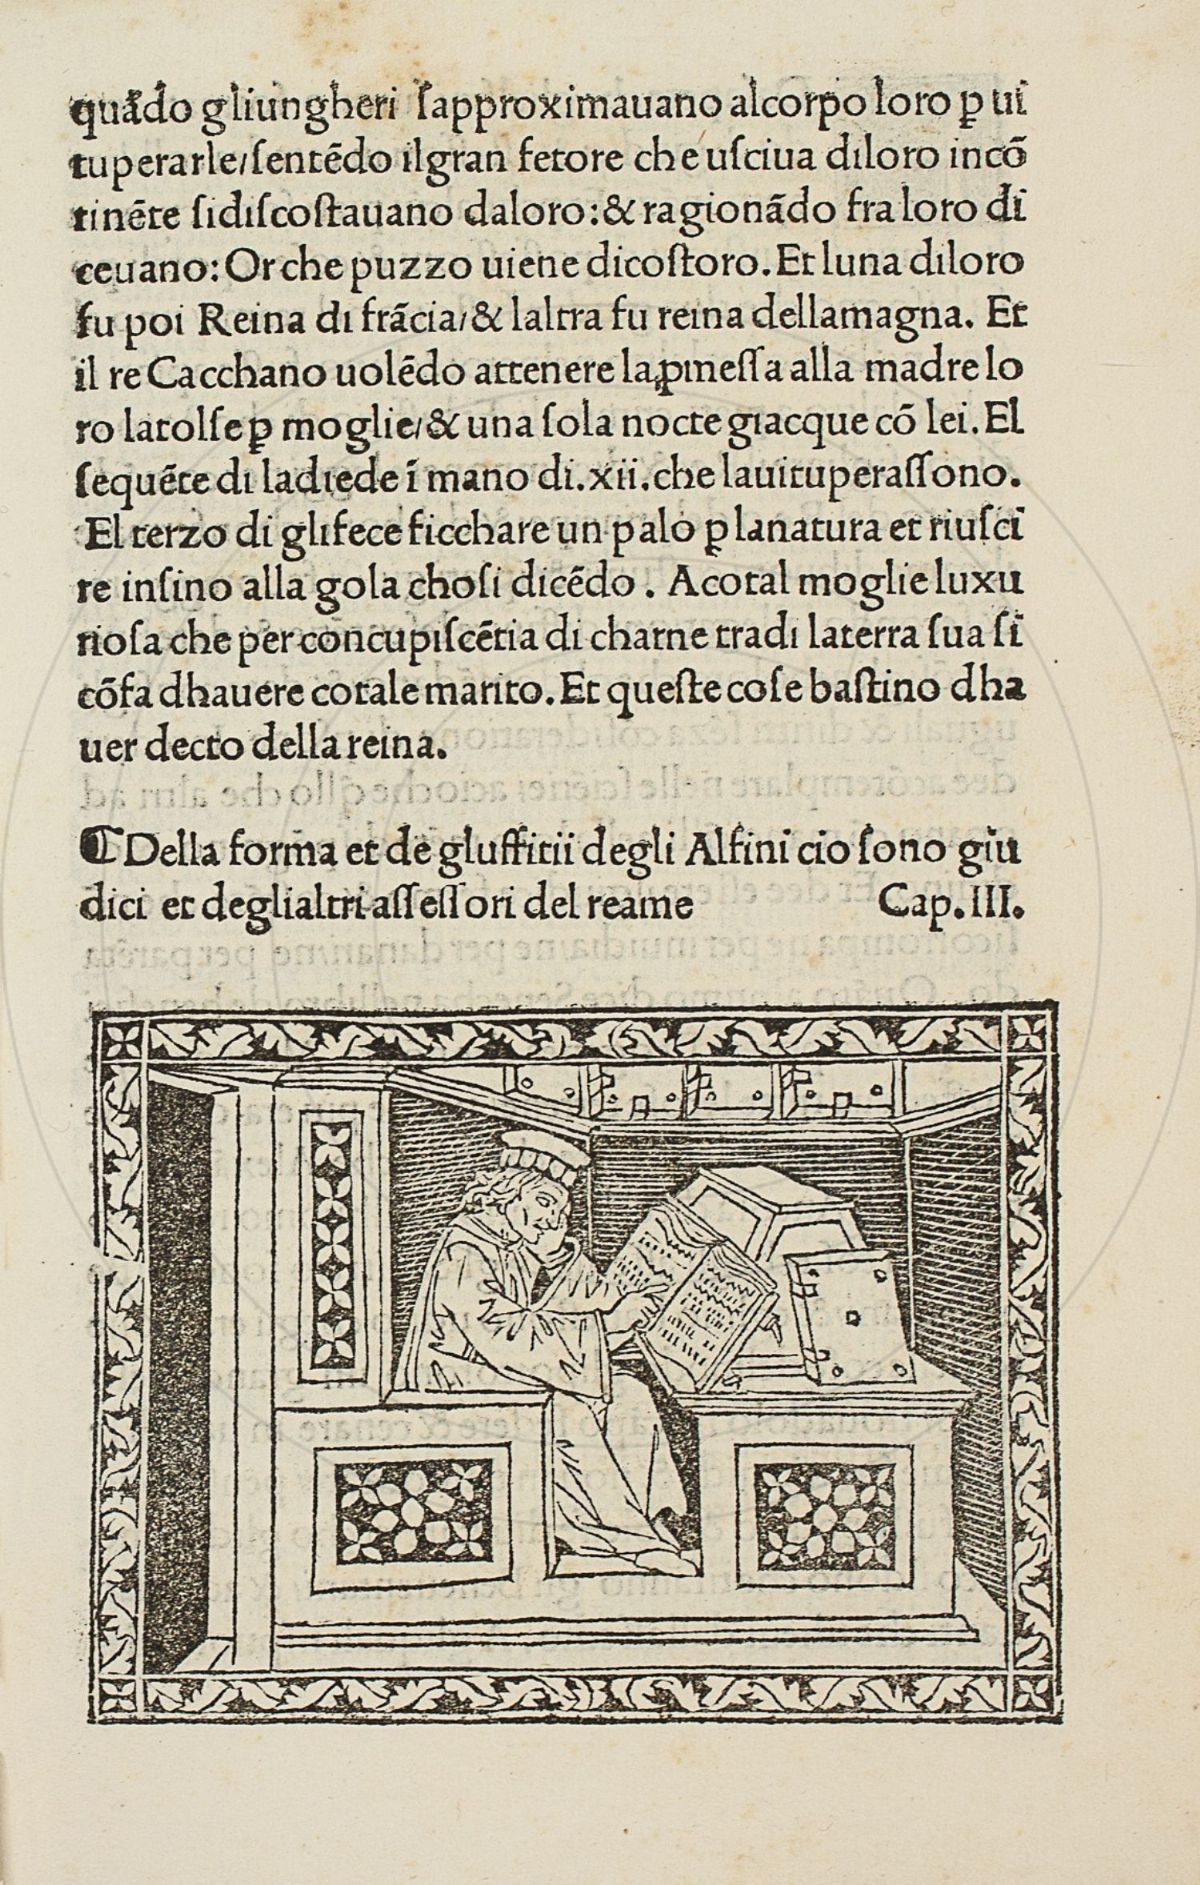 quãdo gliungheri ſapproximauano alcorpo loro ꝑ ui
tuperarle/ſentẽdo ilgran fetore che uſciua diloro incõ
tinẽte ſidiſcoſtauano daloro:& ragionãdo fra loro di
ceuano: Or che puzzo uiene dicoſtoro. Et luna diloro
fu poi Reina di frãcia/& laltra fu reina dellamagna. Et
il re Cacchano uolẽdo attenere laꝓmeſſa alla madre lo
ro latolſe ꝑ moglie/& una ſola nocte giacque cõ lei. El
ſequẽte di ladiede ĩ mano di .xii. che lauituperaſſono.
El terzo di gliſece ficchare un palo ꝑ lanatura et riuſci
re inſino alla gola choſi dicẽdo . Acotal moglie luxu
rioſa che per concupiſcẽtia di charne tradi laterra ſua ſi
cõfa dhauere cotale marito. Et queſte coſe baſtino dha
uer decto della reina.
¶ Della forma et de gluffitii degli Alfini cio ſono giu
dici et deglialtri aſſeſſori del reame Cap. III.